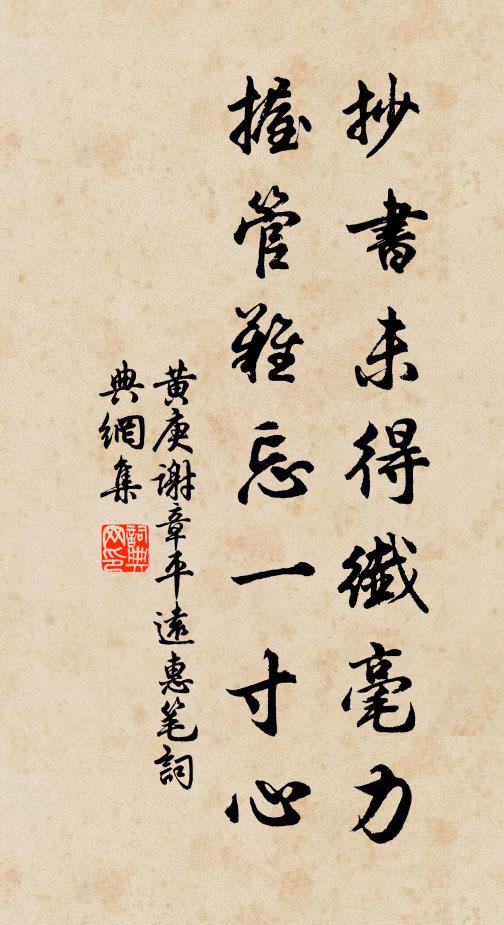 抄書未得纖毫力
握管難忘一寸心
黄庚謝章平遠惠笔詞
典網集
詞典
网印